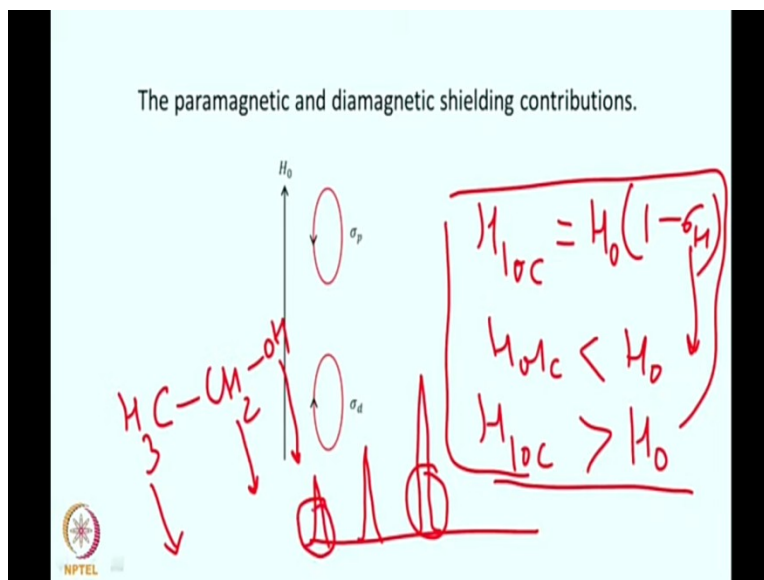 The paramagnetic and diamagnetic shielding contributions.
H₀
σₚ
H_loc = H₀(1-σ_H)
H_loc < H₀
H_loc > H₀
H₃C-CH₂-OH
σ_d
NPTEL